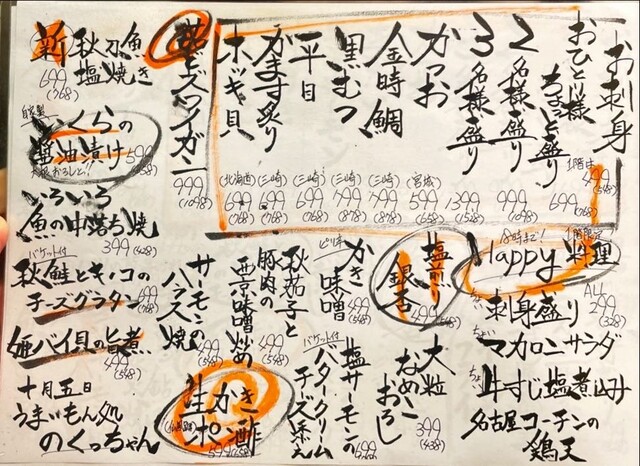 お刺身
おひとり様
ちょっと盛り
1階は
499
(548)
699
(768)
2名様盛り
999
(1098)
3名様盛り
1399
(1528)
かつお
(宮城)
599
(658)
金時鯛
(三崎)
799
(878)
黒むつ
(三崎)
799
(878)
平目
(三崎)
699
(768)
かます炙り
(三崎)
699
(768)
ホッキ貝
(北海道)
699
(768)
ズワイガニ
999
(1098)
新
秋刀魚
塩焼き
699
(768)
自家製
いくらの
醤油漬け
大根おろしと!!
599
(658)
いろいろ
魚の中落ち焼
399
(438)
バケット付
秋鮭とキノコの
チーズグラタン
499
(548)
姫バイ貝の旨煮
499
(548)
十月五日
うまいもん処
のくっちゃん
1階限定
18時まで!
Happy料理
ALL
299
(328)
ちょい
刺身盛り
ちょい
マカロニサラダ
ちょい
牛すじ塩煮込み
名古屋コーチンの
鶏天
塩煎り
銀杏
499
(548)
大粒
なめこ
おろし
399
(438)
かき
味噌
499
(548)
バケット付
塩サーモンの
バタークリーム
チーズ添え
699
秋茄子と
豚肉の
西京味噌炒め
499
(548)
サーモンの
ハラス焼
499
(548)
生かき
ポン酢
599
(658)